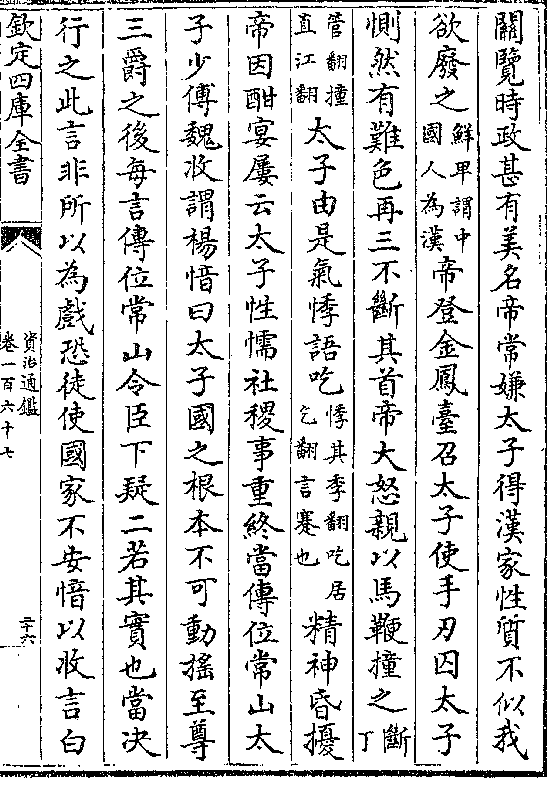 關覽時政甚有美名帝常嫌太子得漢家性質不似我
欲廢之鮮卑謂中國人為漢帝登金鳳臺召太子使手刃囚太子
惻然有難色再三不斷其首帝大怒親以馬鞭撞之斷丁
管翻撞直江翻太子由是氣悸語吃悸其季翻吃居乞翻言蹇也精神昏擾
帝因酣宴屢云太子性懦社稷事重終當傳位常山太
子少傅魏收謂楊愔曰太子國之根本不可動搖至尊
三爵之後每言傳位常山令臣下疑二若其實也當決
行之此言非所以為戲恐徒使國家不安愔以收言白
欽定四庫全書
資治通鑑
卷一百六十七
二十六